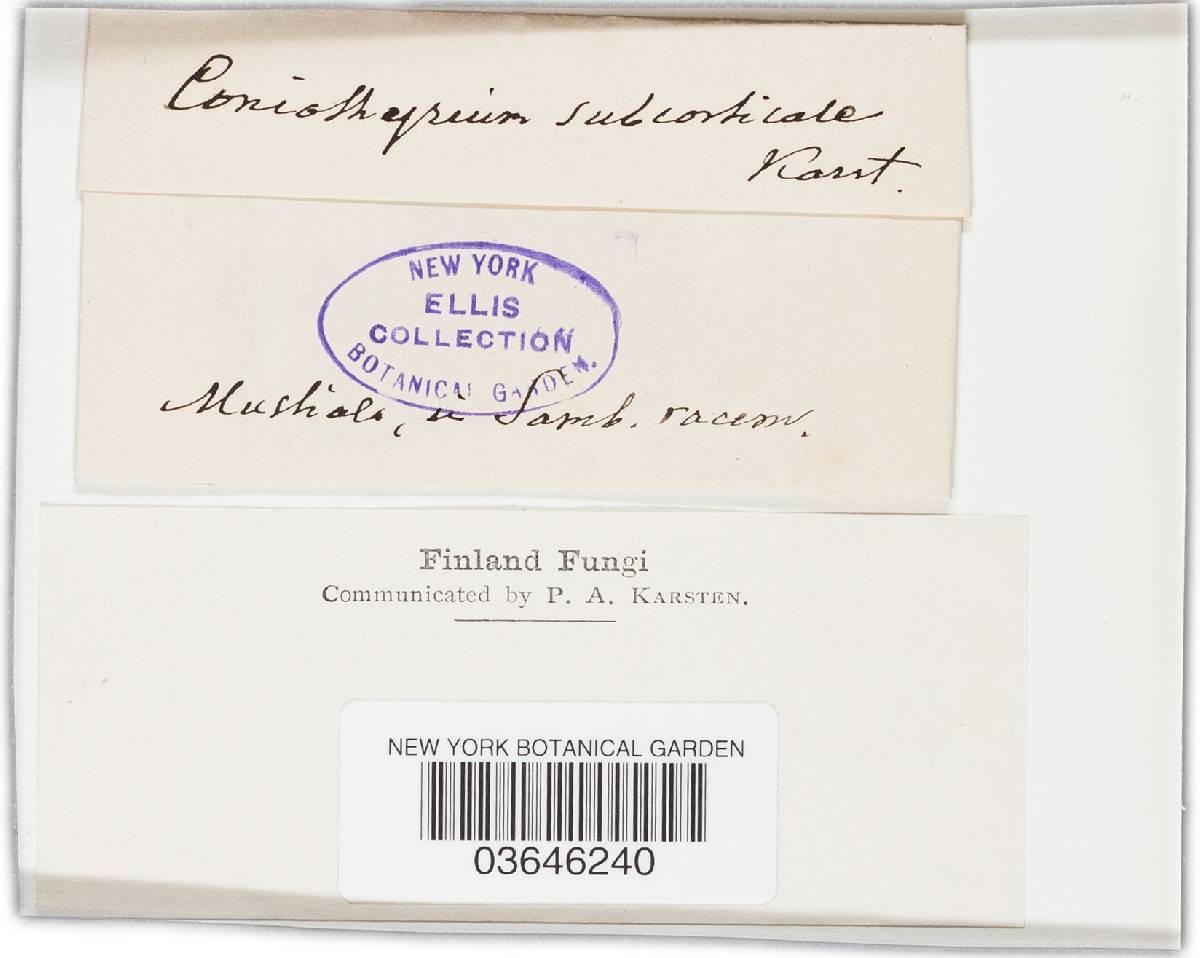 Coniothyrium subcorticale
Karst.
NEW YORK
ELLIS
COLLECTION
BOTANICAL GARDEN.
Mustiala, in Samb. racem.
Finland Fungi
Communicated by P. A. KARSTEN.
NEW YORK BOTANICAL GARDEN
03646240